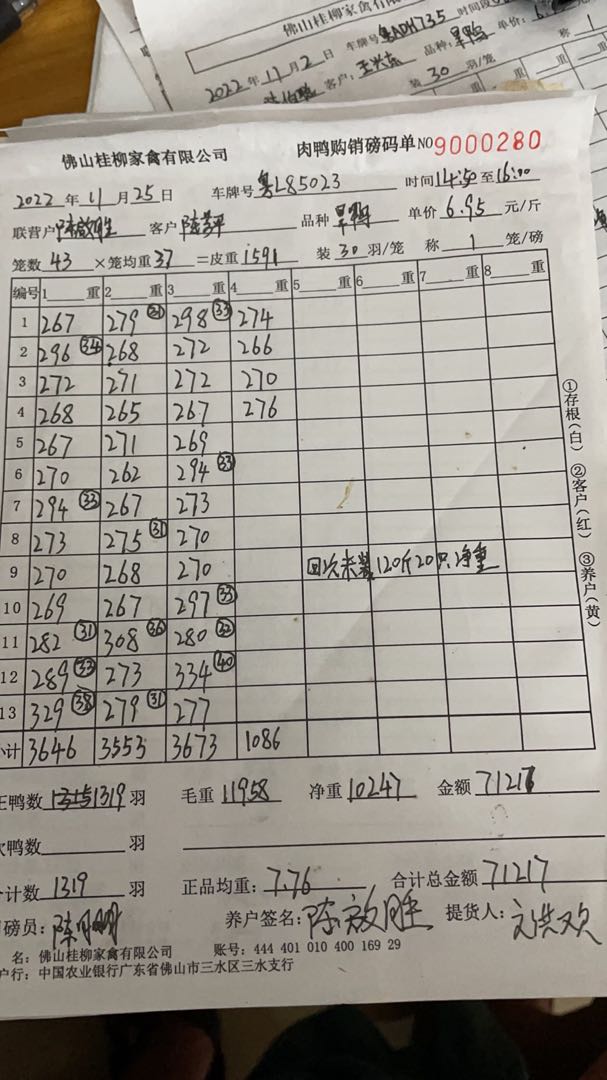 佛山桂柳家禽有限
2022年11月2日 车牌号粤ADH735 时间段
客户:王兴东 品种:旱鸭 单价:6.
装30羽/笼 称1
重 重 重 重
佛山桂柳家禽有限公司 肉鸭购销磅码单 NO9000280
2022年11月25日 车牌号粤L85023 时间14:50至16:00
联营户陈敬胜 客户 品种旱鸭 单价6.95元/斤
笼数43×笼均重37=皮重1591 装30羽/笼 称1笼/磅
编号 1重 2重 3重 4重 5重 6重 7重 8重
1 267 279㉛ 298㉝ 274
2 296㉞ 268 272 266
3 272 271 272 270
4 268 265 267 276
5 267 271 269
6 270 262 294㉝
7 294㉝ 267 273
8 273 275㉛ 270
9 270 268 270 回次未装120斤20只净重
10 269 267 297㉝
11 282㉛ 308㊱ 280㉜
12 289㉝ 273 334㊵
13 329㊳ 279㉛ 277
小计 3646 3553 3673 1086
正鸭数1319羽 毛重11958 净重10247 金额71217
次鸭数 羽
合计数1319羽 正品均重:7.76 合计总金额71217
司磅员: 养户签名:陈敬胜 提货人:
名:佛山桂柳家禽有限公司 账号:444 401 010 400 169 29
户行:中国农业银行广东省佛山市三水区三水支行
①存根(白) ②客户(红) ③养户(黄)